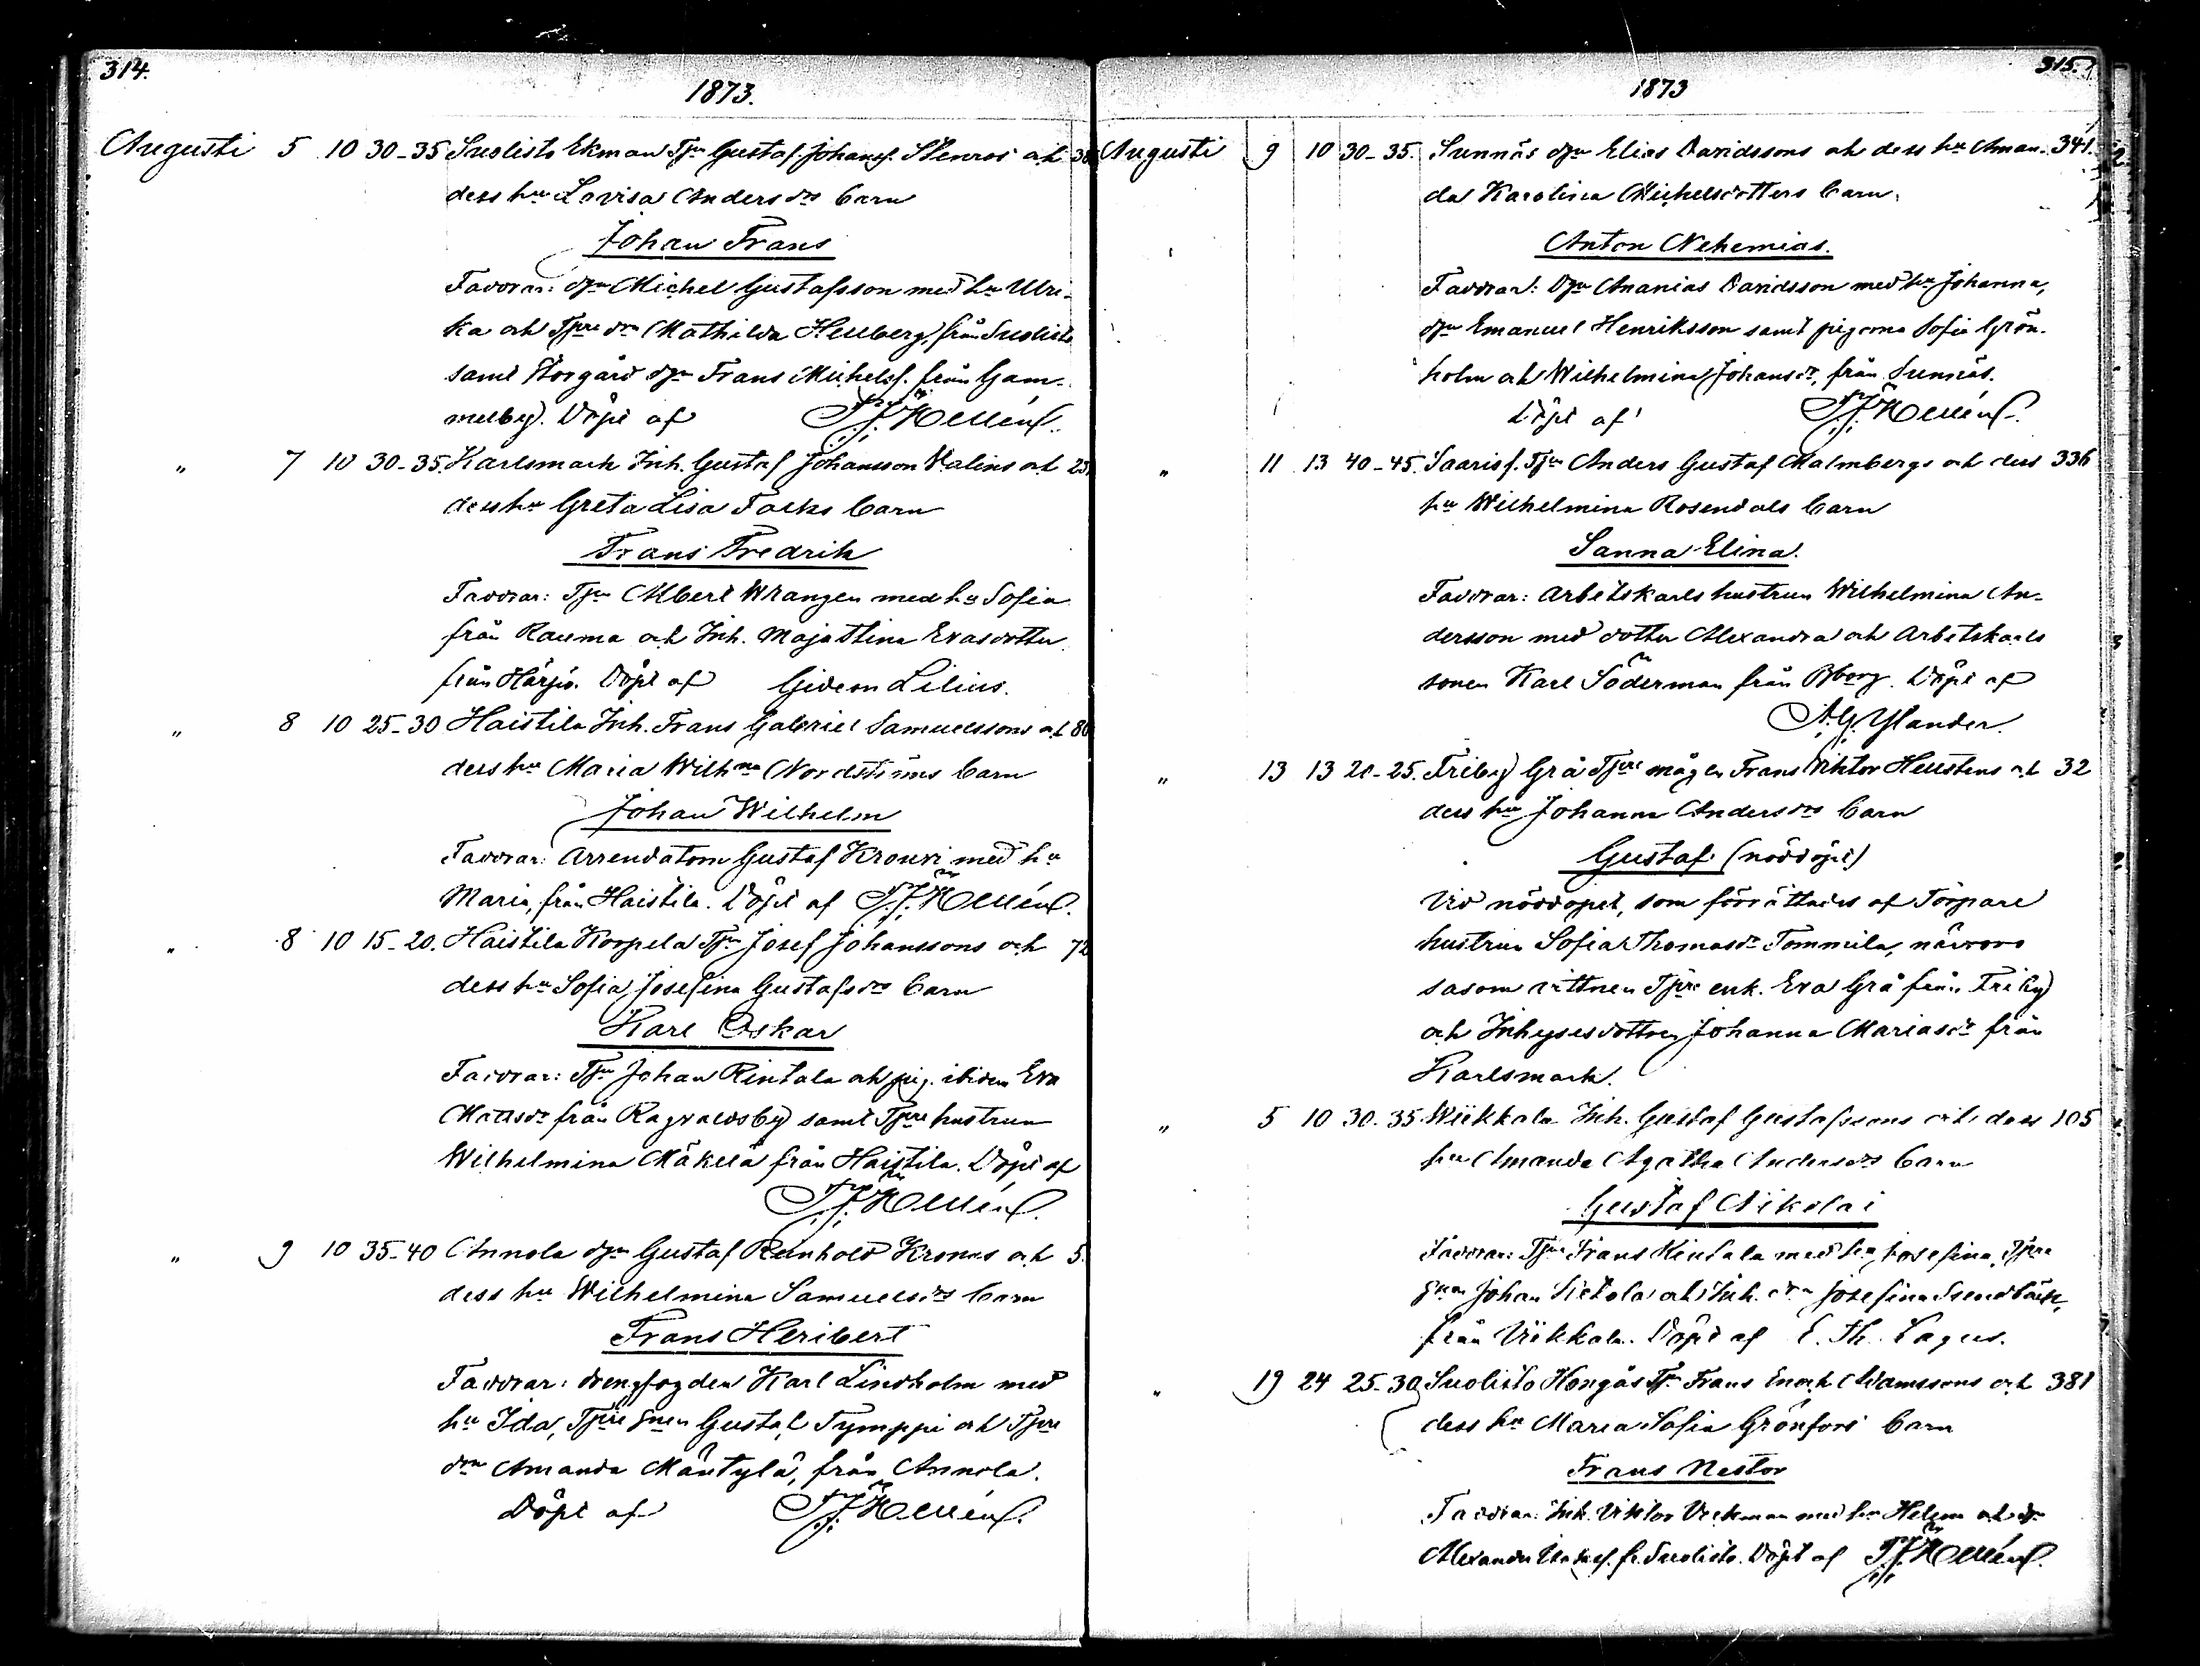 314.
1873.
Augusti 5 10 30-35 Suolisto Ekman Tjn Gustaf Johansf. Stenros och
dess hu Lovisa Anders drs barn
Johan Frans
Faddrar: dgn Michel Gustafsson med hu Ulri-
ka och Tpre drn Mathilda Hellberg, från Suolisto
samt Storgård dgn Frans Michelsf. från Gam-
melby. Döpt af
" 7 10 30-35. Karlsmark Inh. Gustaf Johansson Valins och
dess hu Greta Lisa Facks barn
Frans Fredrik
Faddrar: Tjn Albert Wrangen med hu Sofia
från Rauma och Inh. Maja Stina Evasdotter
från Härjö. Döpt af Gideon Lilius.
" 8 10 25-30 Haistila Inh. Frans Gabriel Samuelssons och 80
dess hu Maria Wilhna Nordströms barn
Johan Wilhelm
Faddrar: Arrendatorn Gustaf Krouvi med hu
Maria, från Haistila. Döpt af
" 8 10 15-20. Haistila Korpela Tjn Josef Johanssons och 72
dess hu Sofia Josefina Gustafsdrs barn
Karl Oskar
Faddrar: Tjn Johan Rintala och pig. ibidem Eva
Mattsdr från Ragvaldsby samt Tpre hustrun
Wilhelmina Mäkelä från Haistila. Döpt af
" 9 10 35-40 Annola dgn Gustaf Reinhold Kronas och 5.
dess hu Wilhelmina Samuelsdrs barn
Frans Heribert
Faddrar: drengfogden Karl Lindholm med
hu Ida, Tpre snen Gustaf Tymppi och Tpre
drn Amanda Mäntylä, från Annola.
Döpt af
315.
1873
Augusti 9 10 30-35. Sunnäs dgn Elias Davidssons och dess hu Aman- 341.
da Karolina Michelsdotters barn
Anton Nehemias.
Faddrar: Dgn Ananias Davidsson med hu Johanna,
dgn Emanuel Henriksson samt pigorna Sofia Grön-
holm och Wilhelmina Johansdr, från Sunnäs.
Döpt af
" 11 13 40-45. Saarisf. Tjn Anders Gustaf Malmbergs och dess 336
hu Wilhelmina Rosendals barn
Sanna Elina.
Faddrar: Arbetskarls hustrun Wilhelmina An-
dersson med dotter Alexandra och Arbetskarls
sonen Karl Söderman från Bborg. Döpt af
A. G. Ylander.
" 13 13 20-25. Friby Grå Tpre mågen Frans Viktor Hellstens och 32
dess hu Johanna Anders drs barn
Gustaf (nöddöpt)
Vid nöddopet, som förrättades af Torpare
hustrun Sofia Thomasdr Tommila, närvoro
såsom vittnen Tpre enk. Eva Grå från Friby
och Inhysesdottren Johanna Mariasdr från
Karlsmark.
" 5 10 30-35. Wiikkala Inh. Gustaf Gustafssons och dess 105
hu Amanda Agatha Andersdrs barn
Gustaf Nikolai
Faddrar: Tjn Frans Hintala med hu Josefina, Tpre
snen Johan Sietola och Inh. drn Josefina
från Viikkala. Döpt af E. Th. Lagus.
" 19 24 25-30 Suolisto Hongås Tjn Frans Enok Adamssons och 381
dess hu Maria Sofia Grönfors barn
Frans Nestor
Faddrar: Inh. Viktor Veckman med hu Helena och
Alexander fr. Suolisto. Döpt af